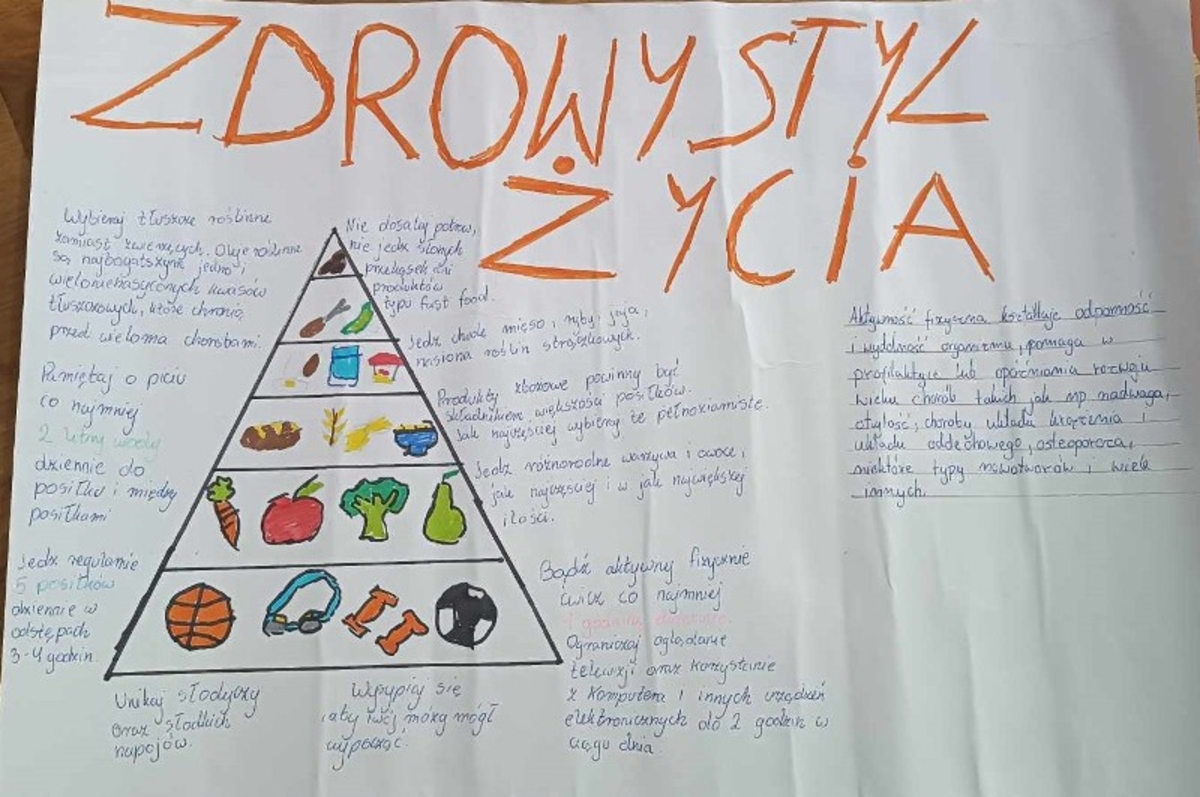 ZDROWY STYL
ŻYCIA
Wybieraj tłuszcze roślinne
zamiast zwierzęcych. Oleje roślinne
są najbogatszym jedno i
wielonienasyconych kwasów
tłuszczowych, które chronią
przed wieloma chorobami.
Nie dosalaj potraw,
nie jedz słonych
przekąsek ani
produktów
typu fast food.
Jedz chude mięso, ryby, jaja,
nasiona roślin strączkowych.
Pamiętaj o piciu
co najmniej
2 litry wody
dziennie do
posiłku i między
posiłkami
Produkty zbożowe powinny być
składnikiem większości posiłków.
Jak najczęściej wybieraj te pełnoziarniste.
Jedz różnorodne warzywa i owoce,
jak najczęściej i w jak największej
ilości.
Jedz regularnie
5 posiłków
dziennie w
odstępach
3-4 godzin.
Bądź aktywny fizycznie
ćwicz co najmniej
1 godzinę dziennie.
Ograniczaj oglądanie
telewizji oraz korzystanie
z komputera i innych urządzeń
elektronicznych do 2 godzin w
ciągu dnia.
Unikaj słodyczy
oraz słodkich
napojów.
Wysypiaj się
,aby twój mózg mógł
wypocząć.
Aktywność fizyczna kształtuje odporność
i wydolność organizmu, pomaga w
profilaktyce lub opóźnianiu rozwoju
wielu chorób takich jak np nadwaga,
otyłość, choroby układu krążenia i
układu oddechowego, osteoporoza,
niektóre typy nowotworów i wiele
innych.